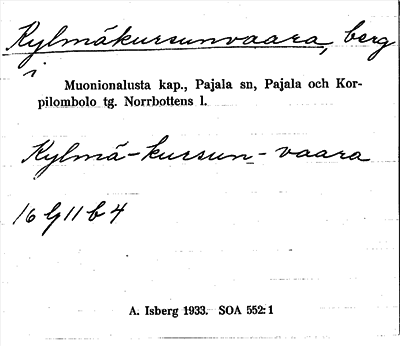 Kylmäkursunvaara, berg
i
Muonionalusta kap., Pajala sn, Pajala och Kor-
pilombolo tg. Norrbottens l.
Kylmä-kursun-vaara
16 G 11 b 4
A. Isberg 1933. SOA 552:1